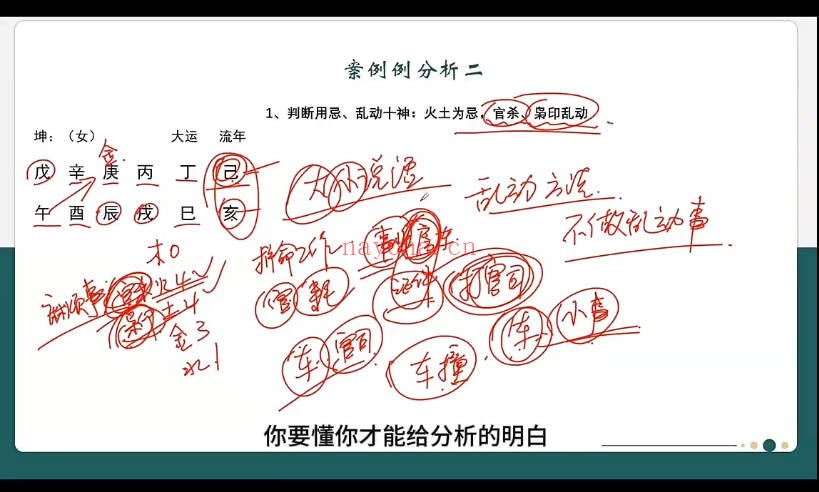 案例例分析二
1、判断用忌、乱动十神：火土为忌，官杀、枭印乱动
坤：（女） 大运 流年
金
戊 辛 庚 丙 丁 己
午 酉 辰 戌 巳 亥
乱动方法
不做乱动事
木0
火4
土4
金3
水1
拼命工作
证件
打官司
车 官司
车撞
车 小事
你要懂你才能给分析的明白